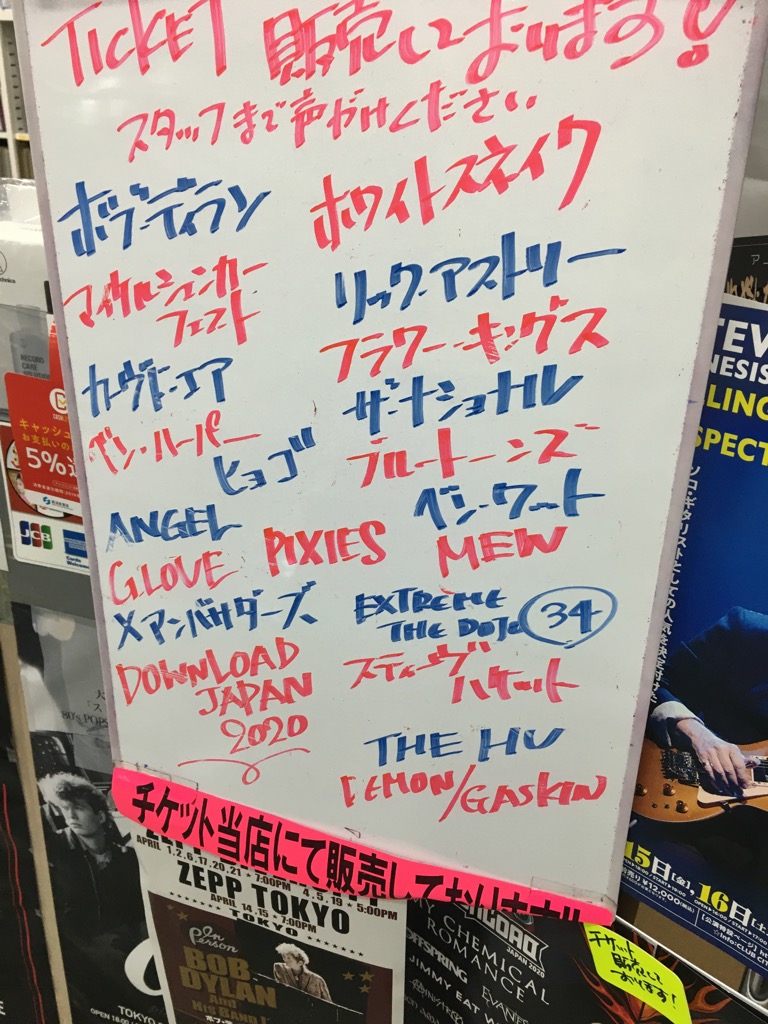 TICKET 販売しております!
スタッフまで声がけください
ボブ・ディラン
ホワイトスネイク
マイケルシェンカー
フェスト
リック・アストリー
フラワー・キングス
カーヴド・エア
ザ・ナショナル
ベン・ハーパー
ヒョゴ
ブルートーンズ
ANGEL
ベン・ワット
GLOVE PIXIES
MEW
Xアンバサダーズ
EXTREME
THE DOJO 34
DOWNLOAD
JAPAN
2020
スティーヴ
ハケット
THE HU
DEMON/GASKIN
チケット当店にて販売しております!!
APRIL 1,2,6,17,20,21 7:00PM 4,5,19 5:00PM
ZEPP TOKYO
APRIL 14,15 7:00PM
TOKYO
In Person
BOB
DYLAN
And
His BAND!
JAPAN 2020
MY CHEMICAL
ROMANCE
OFFSPRING
JIMMY EAT
EVANES
チケット
販売して
おります!
RECORD
CARE
キャッシュ
お支払いの
5%
JCB
80's POPS
TOKYO
OPEN 18:00
TEV
NESIS
LING
SPECT
ソロ・ギタリストとしての人気を決定付けた
15日[金],16日[土
¥12,000
Info:CLUB CIT